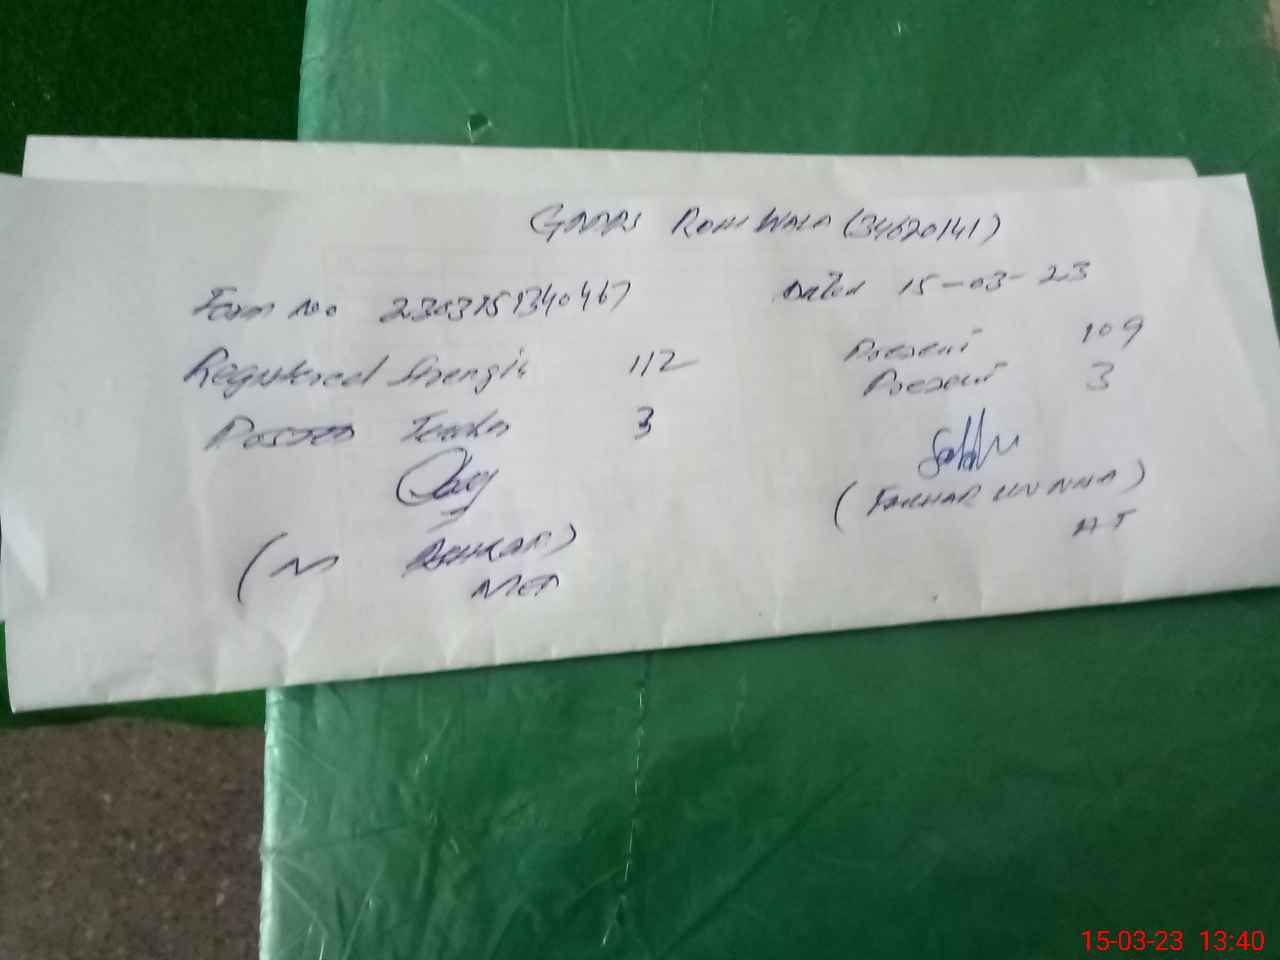 GMPS ROHI WALA (34620141)
Form No 2303151340467 Dated 15-03-23
Registered Strength 112 Present 109
Teacher 3 Present 3
(M ASHRAF)
(FAKHAR UN NISA)
AT
15-03-23 13:40